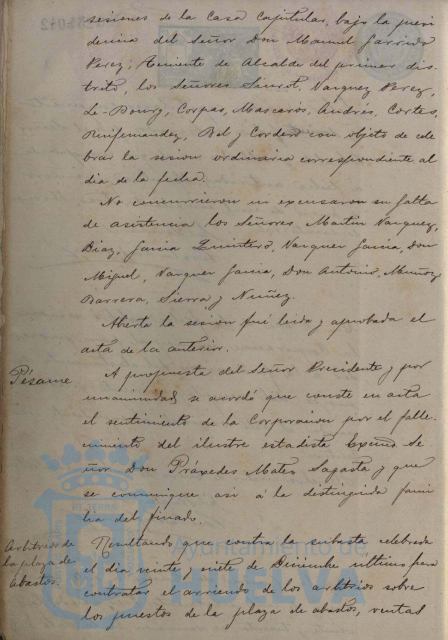 sesiones de la Casa Capitular, bajo la presi
dencia del Señor Don Manuel Garrido
Perez, Teniente de Alcalde del primer dis-
trito, los Señores Vazquez Perez,
Le-Bourg, Corpas, Mascarós, Andrés, Cortes,
Ruifernandez, Bel y Cordero con objeto de cele
brar la sesion ordinaria correspondiente al
dia de la fecha.
No concurrieron ni excusaron su falta
de asistencia los Señores Martin Vazquez,
Diaz, Garcia Quintero, Vazquez Garcia, Don
Miguel, Vazquez Garcia, Don Antonio, Muñoz
Barrera, Sierra y Nuñez.
Abierta la sesion fué leida y aprobada el
acta de la anterior.
Pésame
A propuesta del Señor Presidente y por
unanimidad se acordó que conste en acta
el sentimiento de la Corporacion por el falle-
cimiento del ilustre estadista Excmo Se
ñor Don Práxedes Mateo Sagasta y que
se comunique asi á la distinguida fami
lia del finado.
Arbitrios de
la plaza de
Abastos.
Resultando que contra la subasta celebrada
el dia veinte y siete de Diciembre último para
contratar el arriendo de los arbitrios sobre
los puestos de la plaza de abastos, ventas
Ayuntamiento de
HUELVA